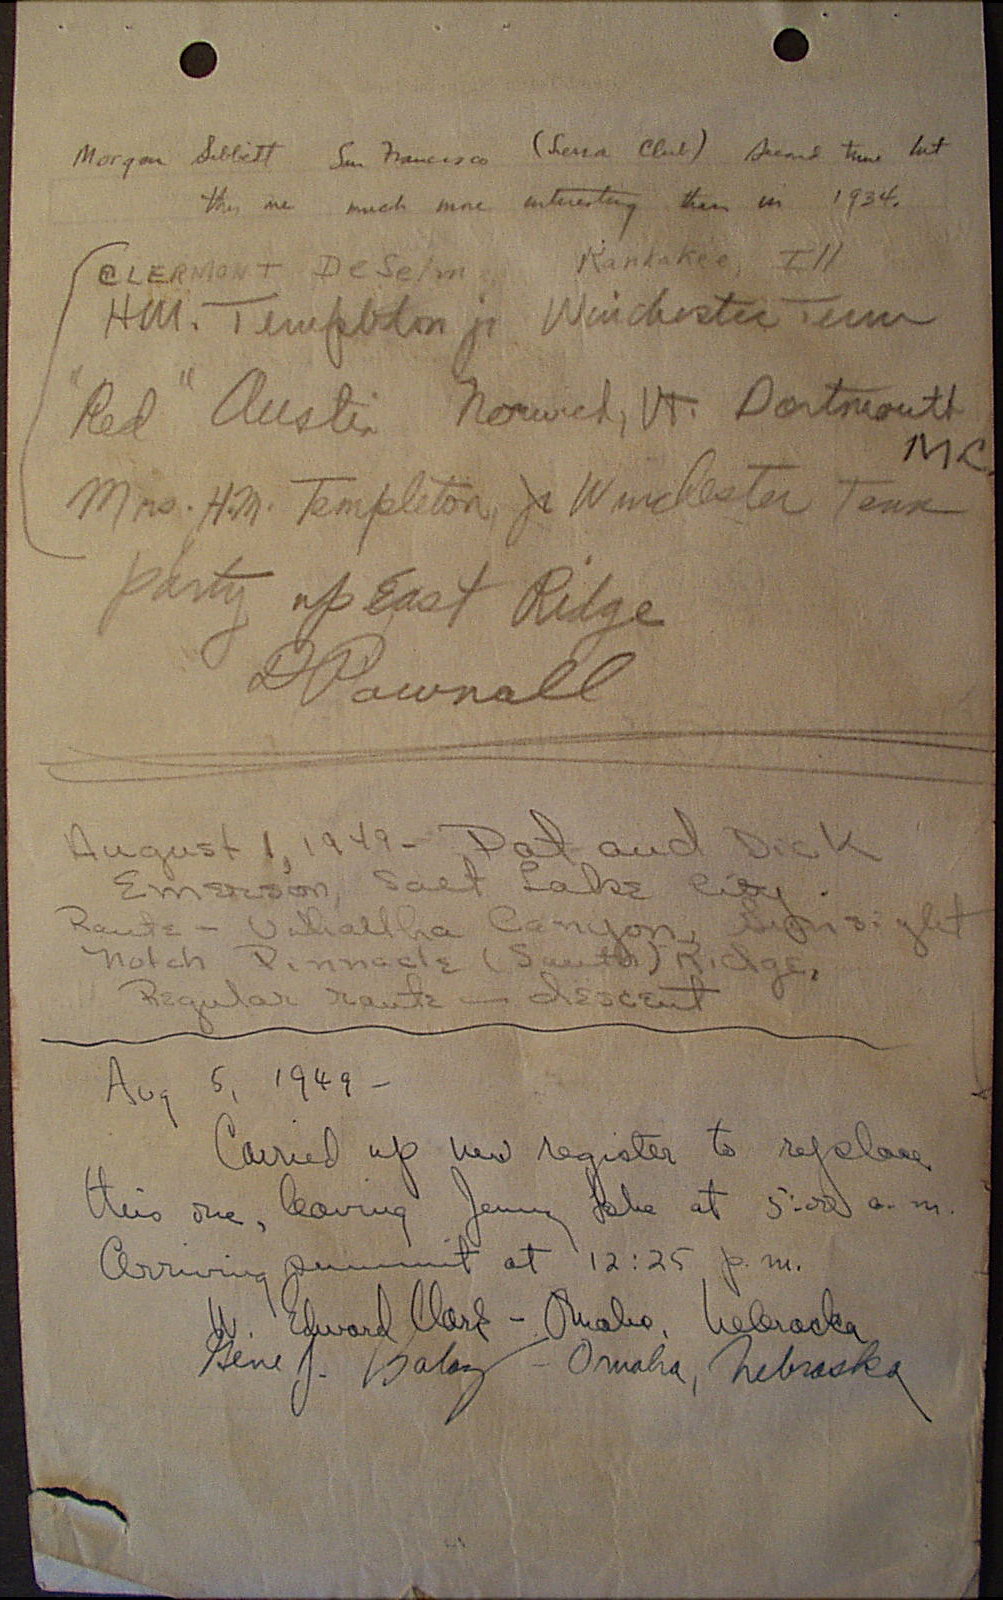 Morgan Sibbett San Francisco (Sierra Club) second time but
this one much more interesting than in 1934.
CLERMONT DeSelm Kankakee, Ill
H.M. Templeton jr Winchester Tenn
"Red" Austin Norwich, Vt. Dartmouth
M C.
Mrs. H.M. Templeton, Jr Winchester Tenn
party up East Ridge
D Pownall
August 1, 1949 - Pat and Dick
Emerson, Salt Lake City.
Route - Valhalla Canyon, Gunsight
Notch Pinnacle (South) Ridge,
Regular route - descent
Aug 5, 1949 -
Carried up new register to replace
this one, leaving Jenny Lake at 5:00 a.m.
Arriving summit at 12:25 p.m.
W. Edward Clark - Omaha, Nebraska
Gene J. - Omaha, Nebraska